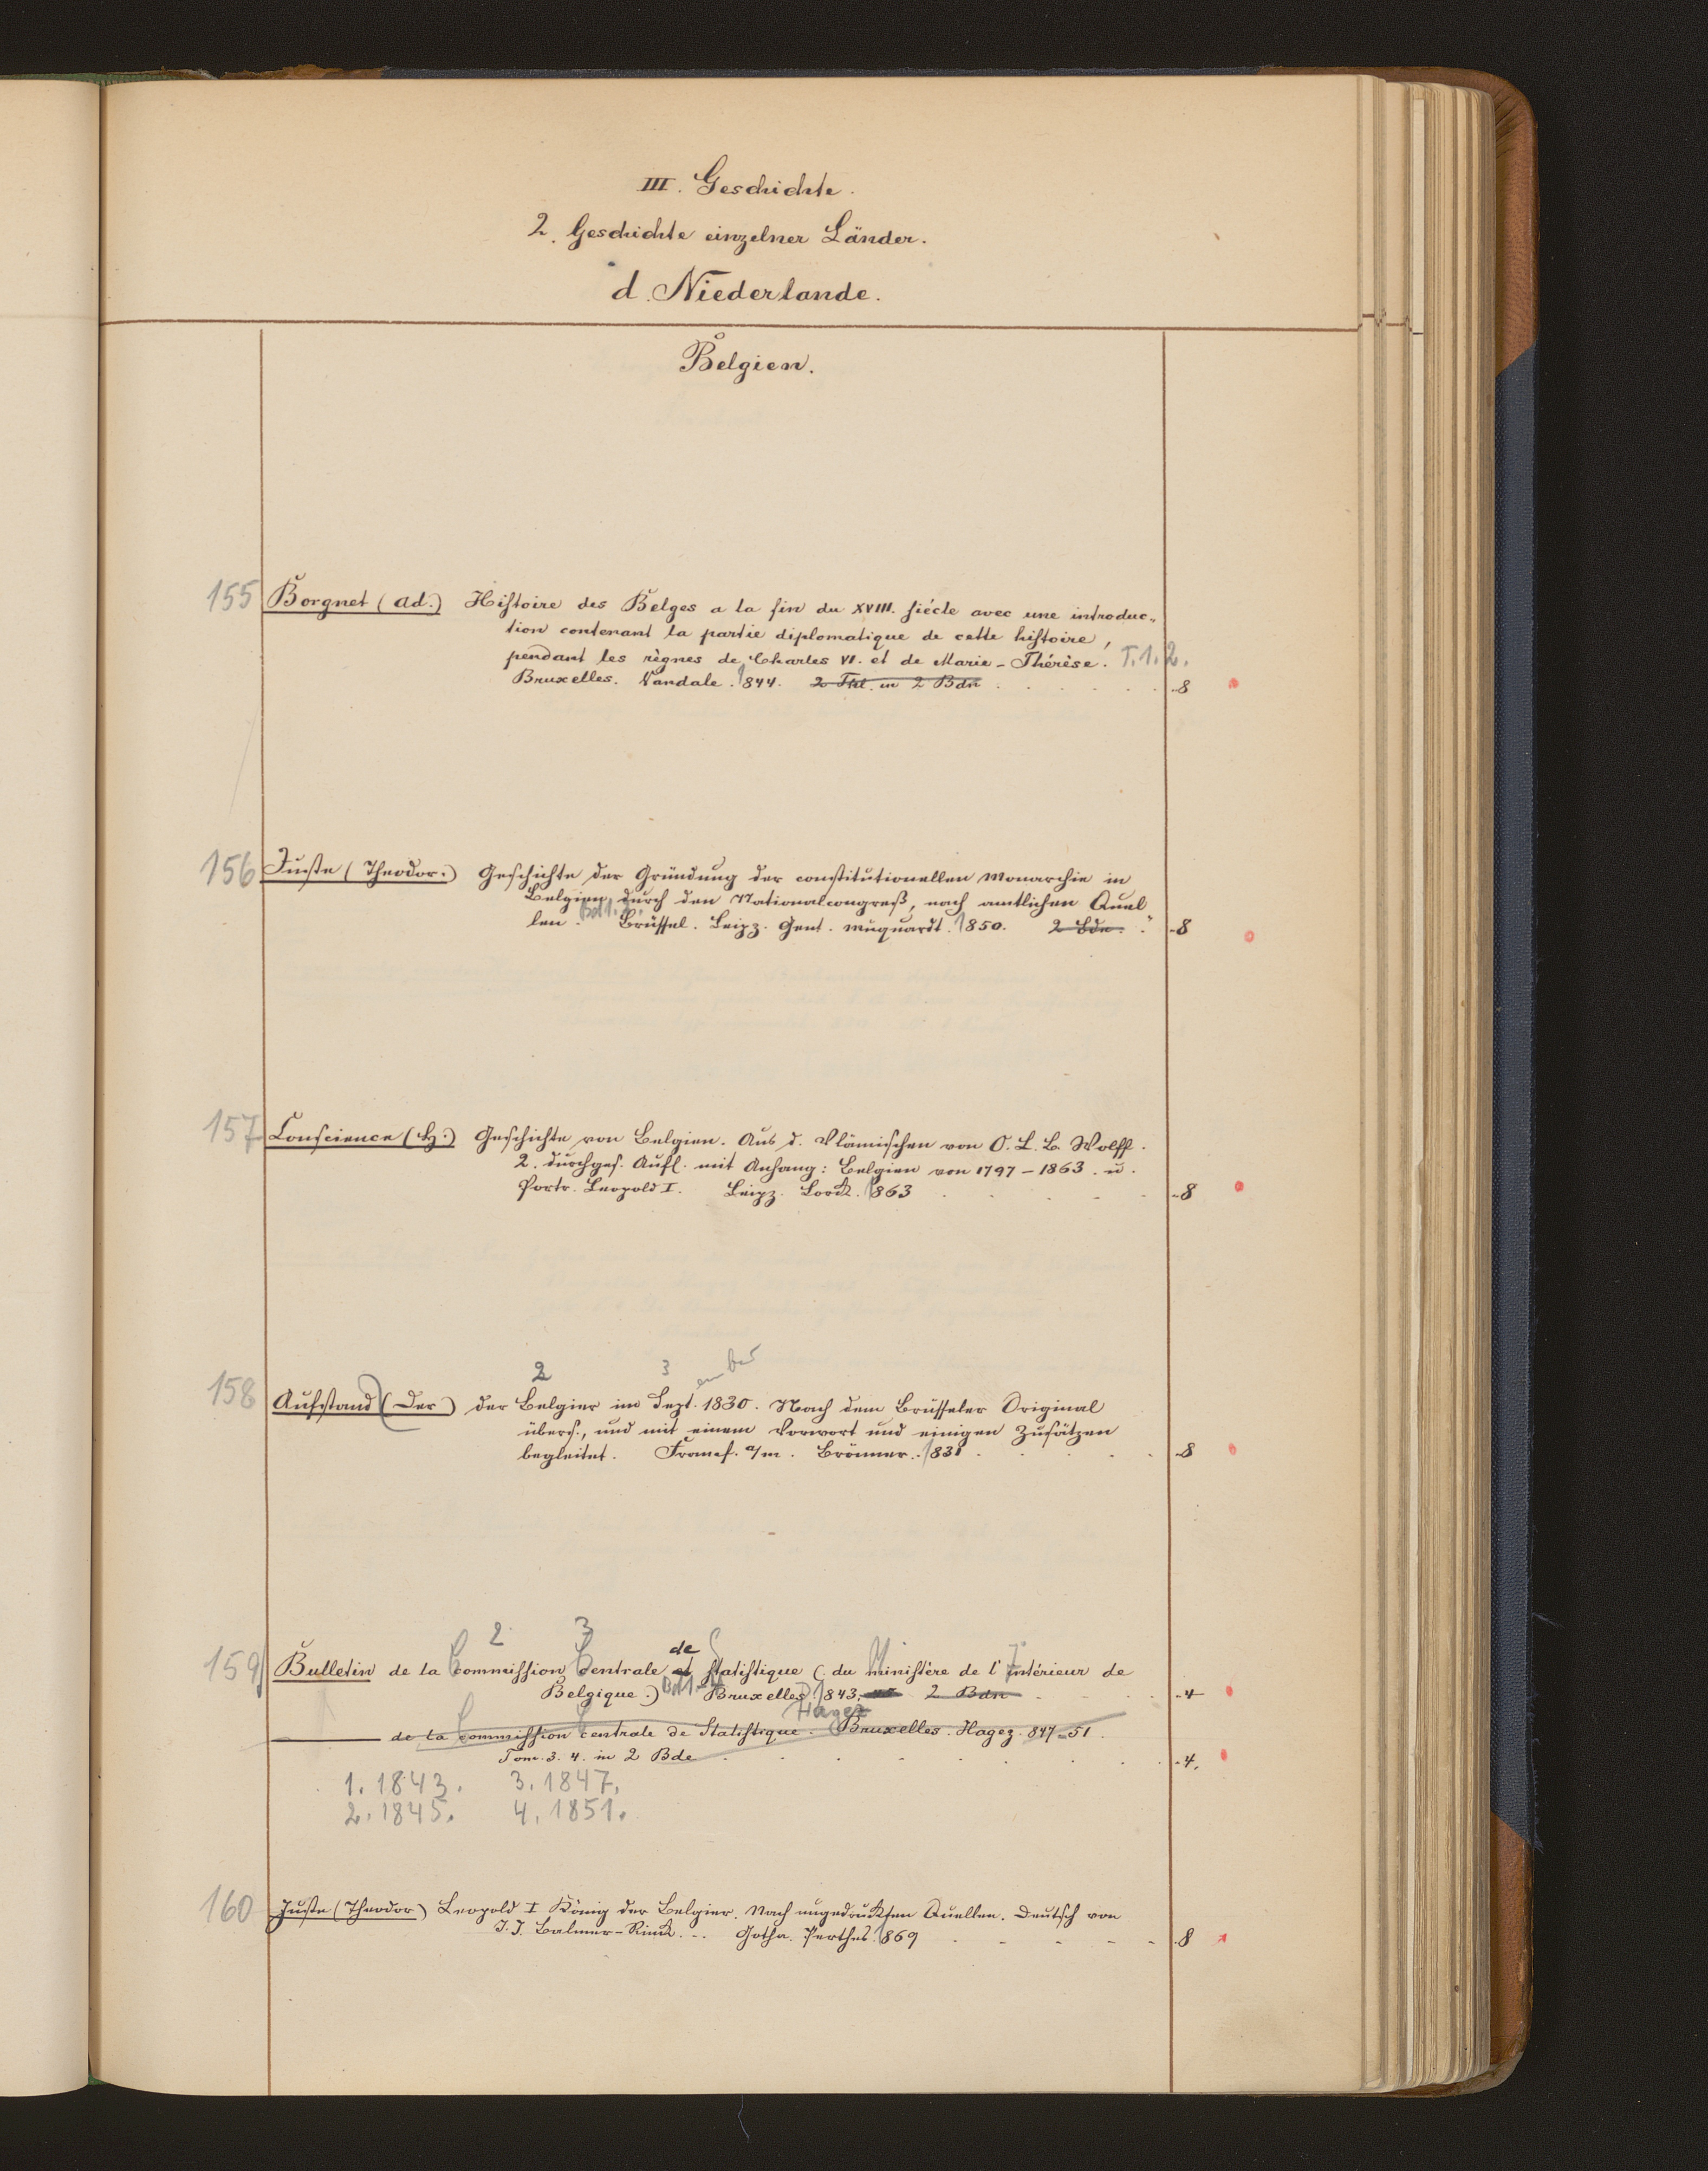 III. Geschichte.
2. Geschichte einzelner Länder.
d. Niederlande.
Belgien.
155 Borgnet (Ad.) Histoire des Belges a la fin du XVIII. siécle avec une introduc„
tion contenant la partie diplomatique de cette histoire,
pendant les règnes de Charles VI. et de Marie-Thérèse. T. 1. 2.
Bruxelles. Vandale. 1844. 2 Thl. in 2 Bdn . . . . . 8
156 Juste (Theodor.) Geschichte der Gründung der constitutionellen Monarchie in
Belgien, durch den Nationalcongreß, nach amtlichen Quel
len. Bd 1. 2. Brüssel. Leipz. Gent. Muquardt. 1850. 2 Bde. 8
157 Conscience (H.) Geschichte von Belgien. Aus d. Vlämischen von O. L. B. Wolff.
2. durchges. Aufl. mit Anhang: Belgien von 1797-1863. u.
Portr. Leopold I. Leipz. Lorck. 1863 . . . . . 8
2 3 ember
158 Aufstand (Der) der Belgier im Sept. 1830. Nach dem Brüsseler Original
übers., und mit einem Vorwort und einigen Zusätzen
begleitet. Francf. a/m. Brönner. 1831 . . . . 8
2 3
de
159 Bulletin de la Commission Centrale et Statistique (du Ministère de l'Intérieur de
Belgique.) Bd 1-4 Bruxelles, 1843. 2 Bdn . . . . 4
Hagez
de la Commission Centrale de Statistique. Bruxelles. Hagez. 847-51.
Tom. 3. 4. in 2 Bde . . . . . . . 4.
1. 1843. 3. 1847.
2. 1845. 4. 1851.
160 Juste (Theodor) Leopold I König der Belgier. Nach ungedrukten Quellen. Deutsch von
J. J. Balmer-Rinck. .. Gotha. Perthes. 1869 - - - - - 8